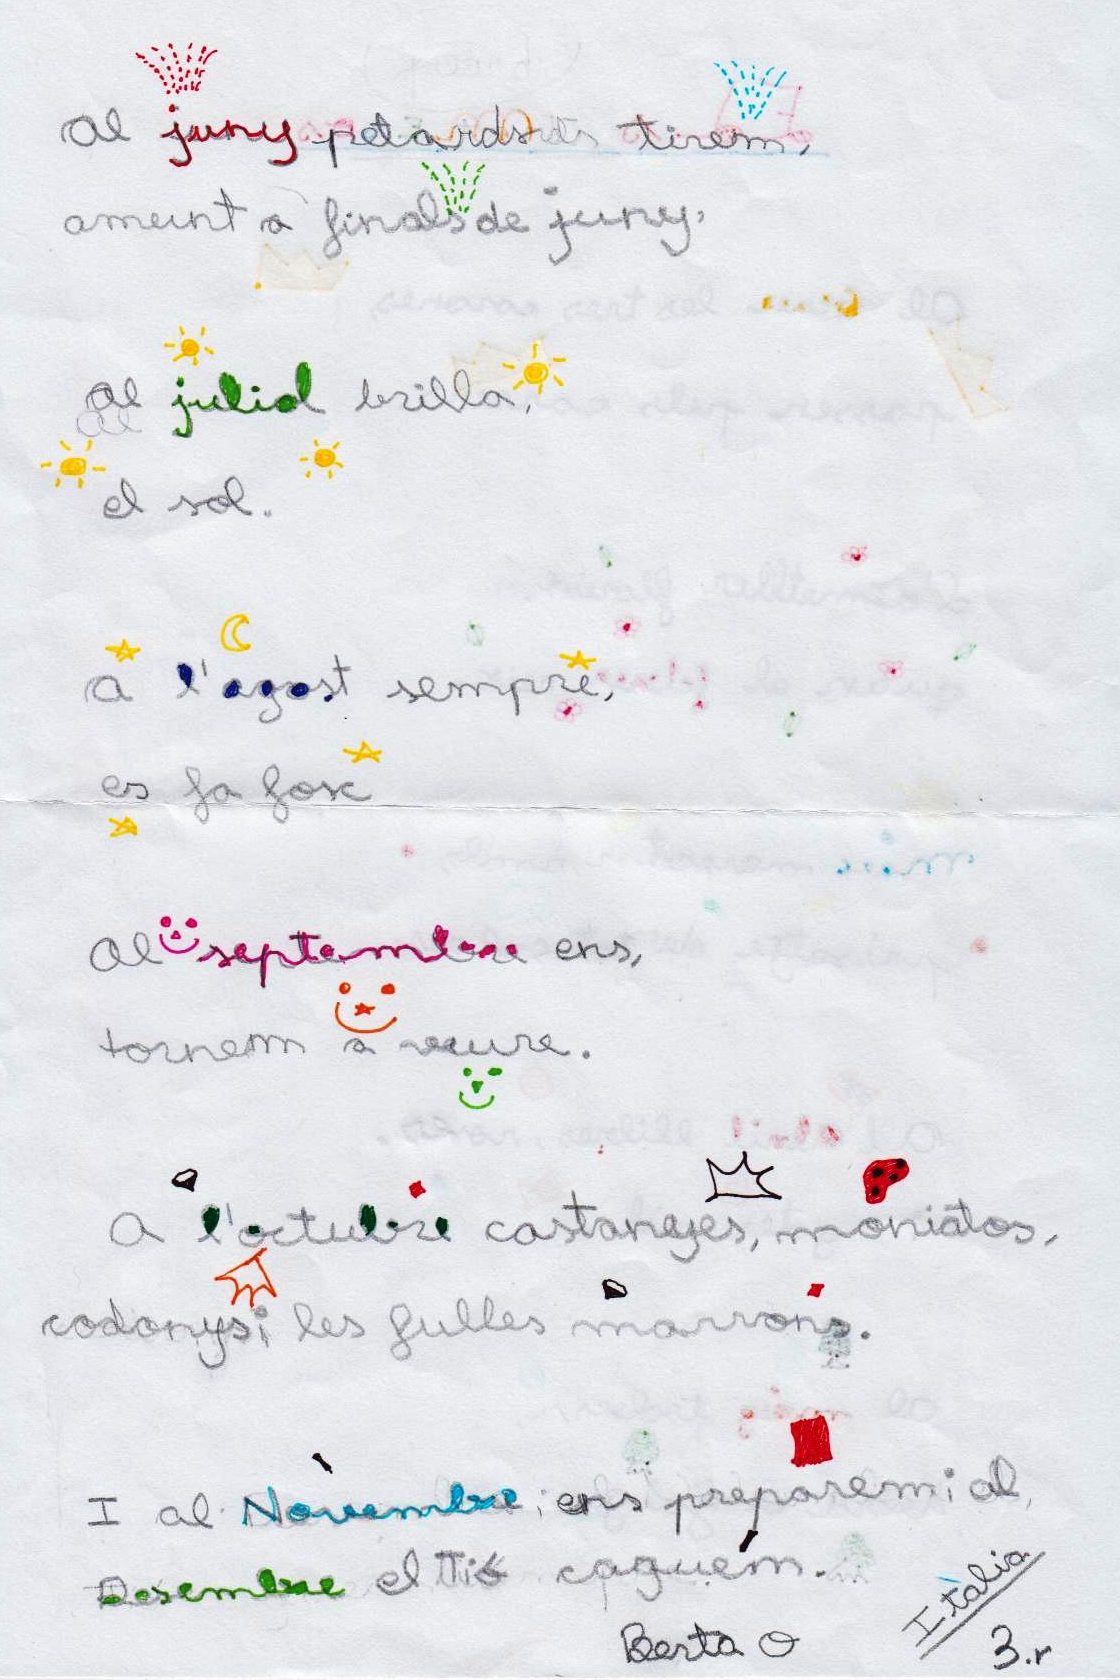 Al juny petards tirem,
amunt a finals de juny.
Al juliol brilla,
el sol.
A l'agost sempre,
es fa fosc
Al septembre ens,
tornem a veure.
A l'octubre castanyes, moniatos,
codonys i les fulles marrons.
I al Novembre, ens preparem i al,
Desembre el Tió caguem.
Berta O
Itàlia
3.r